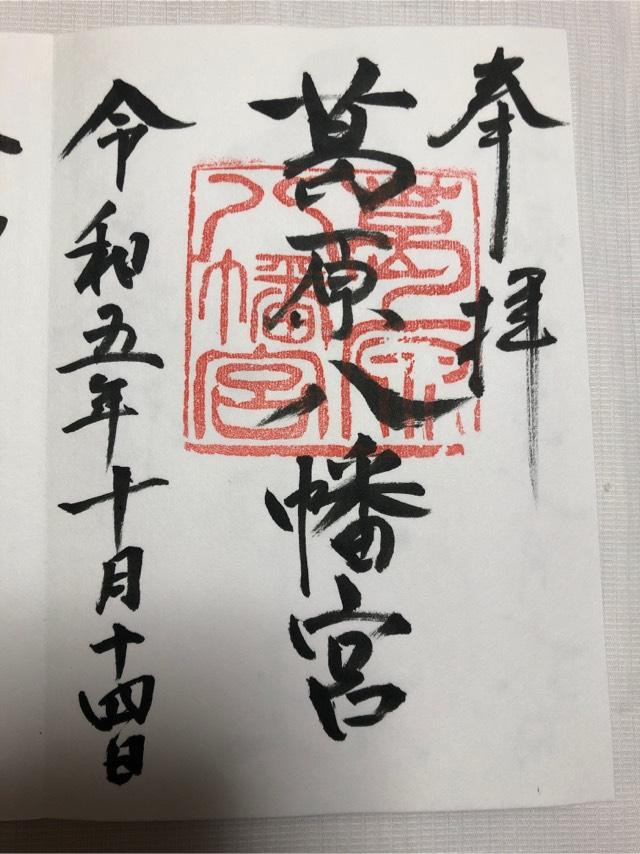 奉拝
葛原八幡宮
葛原八幡宮
令和五年十月十四日